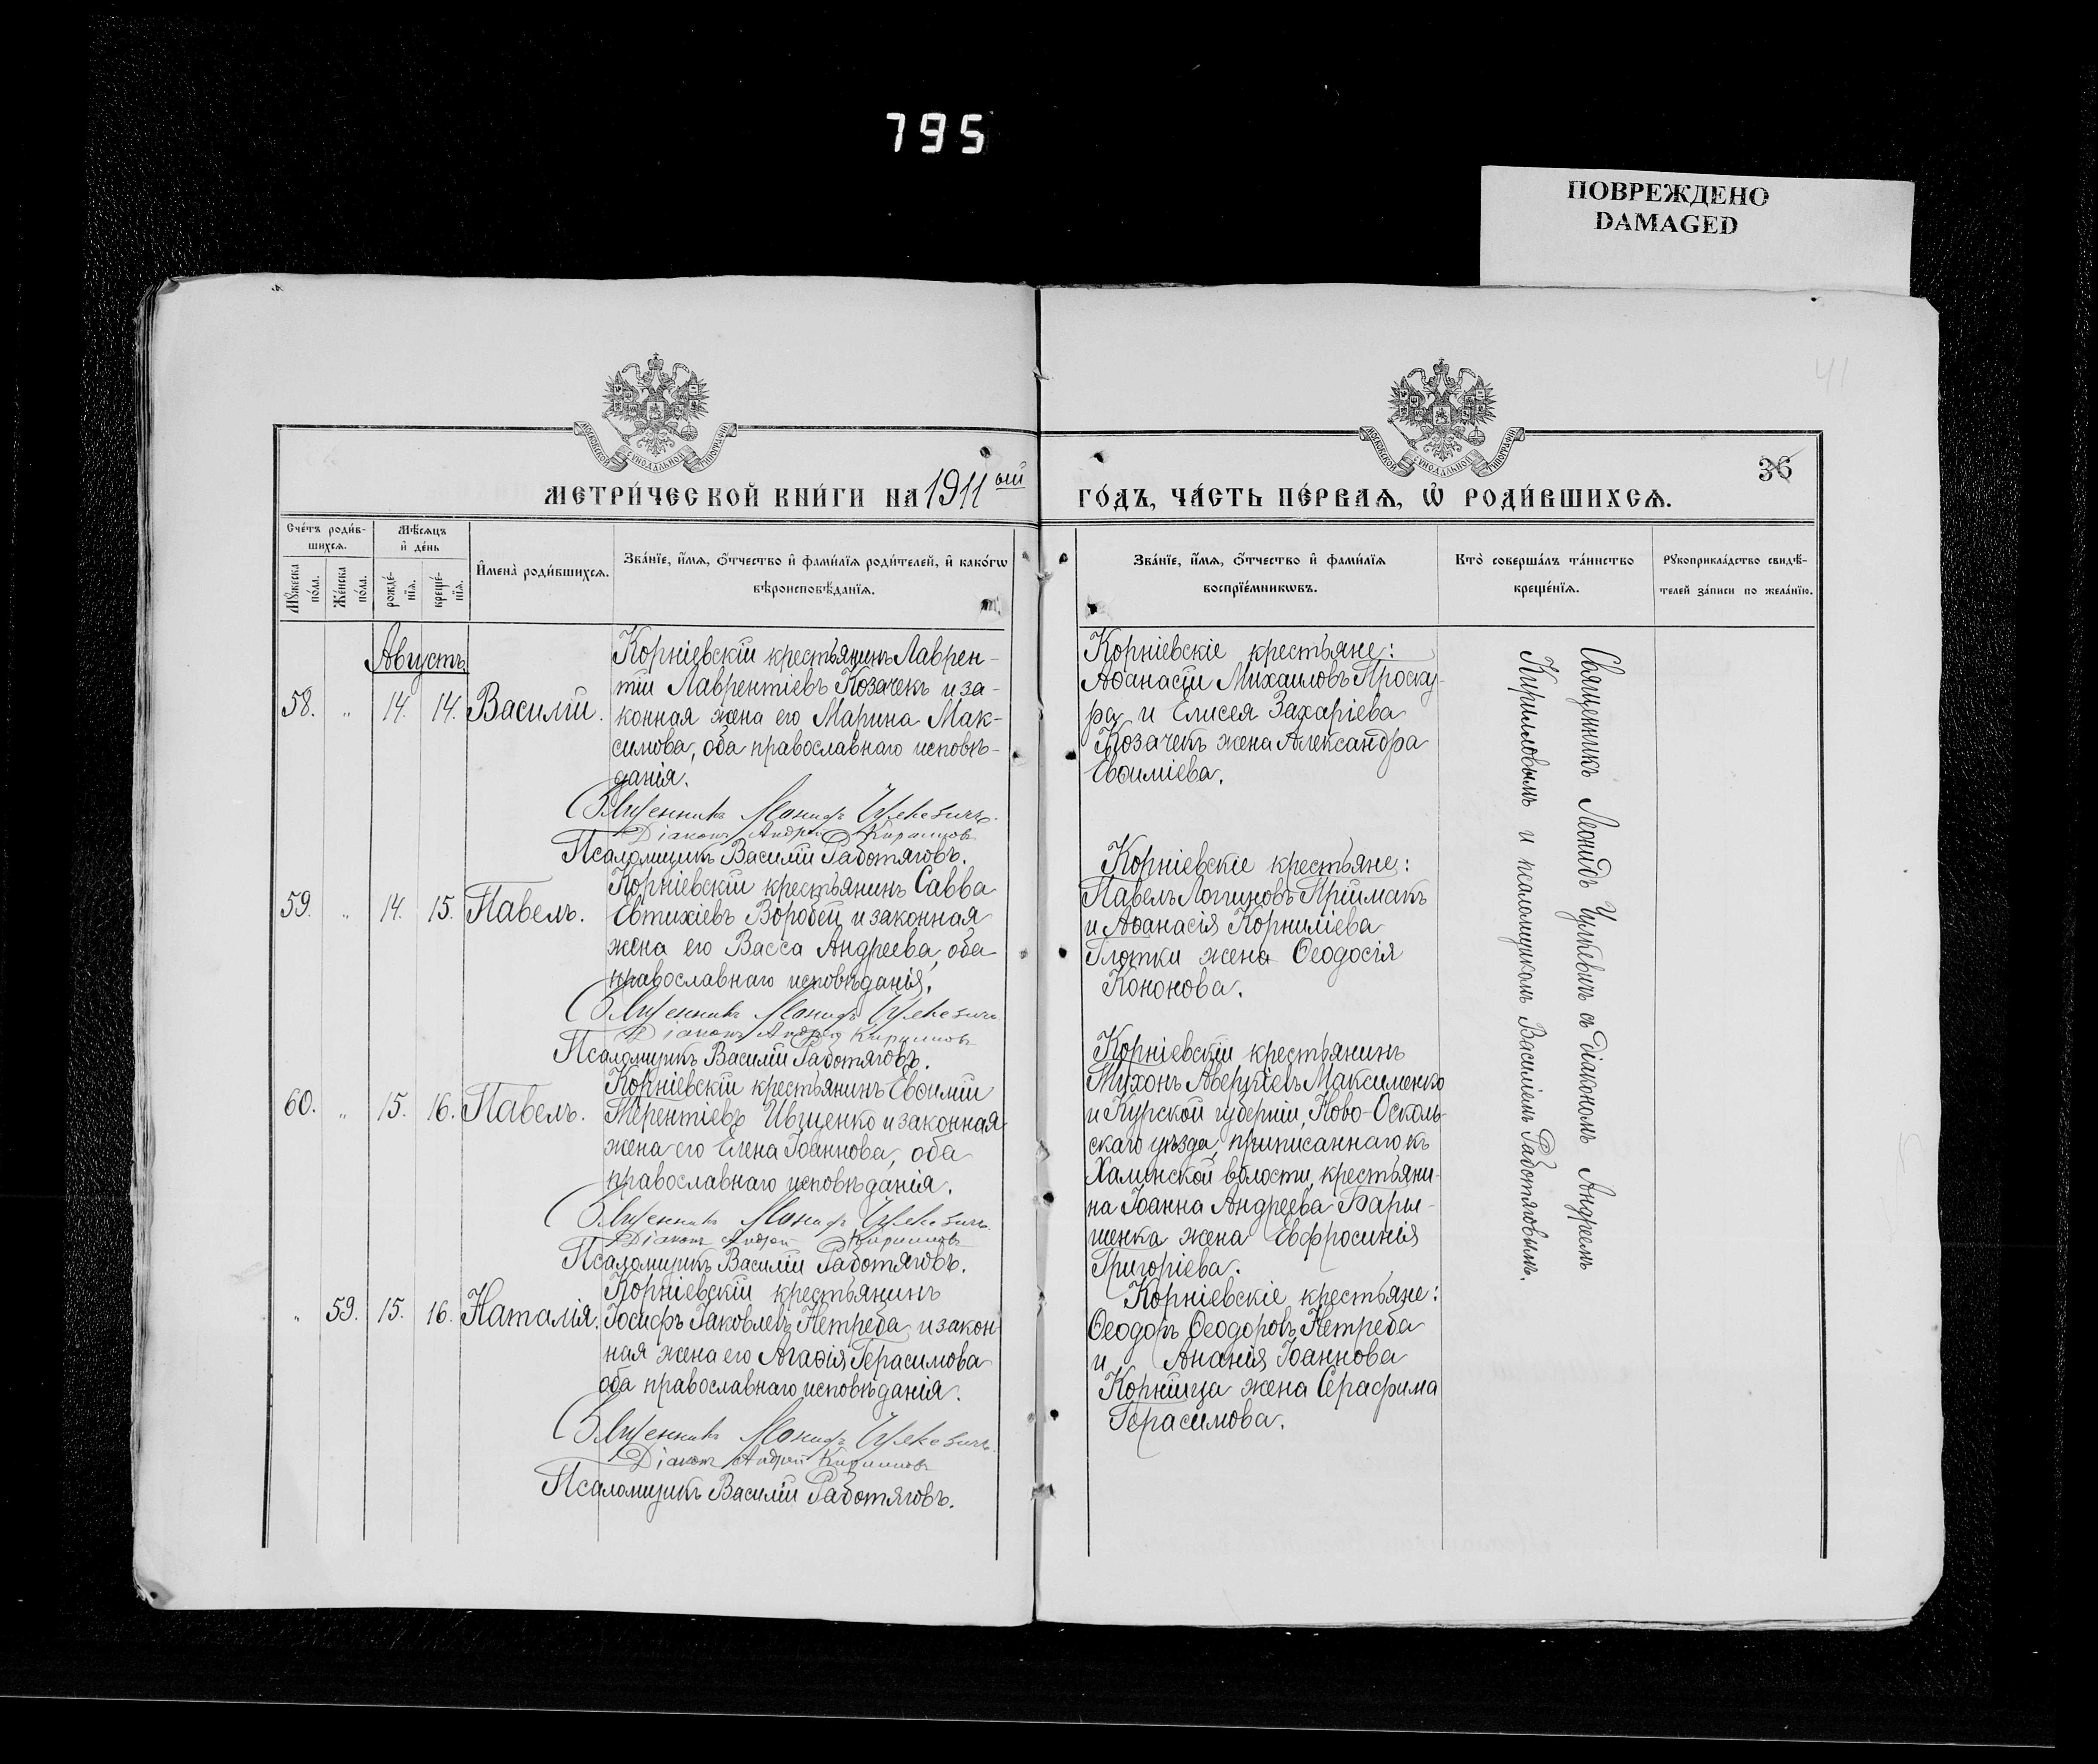 795
ПОВРЕЖДЕНО
DAMAGED
41
МОСКОВСКОЙ СУНОДАЛЬНОЙ ТИПОГРАФІИ
МОСКОВСКОЙ СУНОДАЛЬНОЙ ТИПОГРАФІИ
36
МЕТРИ́ЧЕСКОЙ КНИ́ГИ НА 1911 ый
ГО́ДЪ, ЧА́СТЬ ПЕ́РВАѦ, Ѡ РОДИ́ВШИХСѦ.
Сче́тъ роди́в-
шихсѧ.
Мꙋжеска по́ла.
Же́нска по́ла.
Мѣ́сѧцъ
и҆ де́нь
рожде́-
нїѧ.
креще́-
нїѧ.
И҆мена̀ роди́вшихсѧ.
Зва́нїе, и҆́мѧ, ѻ҆́тчество и҆ фами́лїѧ роди́телей, и҆ како́гѡ
вѣроисповѣ́данїѧ.
Зва́нїе, и҆́мѧ, ѻ҆́тчество и҆ фами́лїѧ
воспрїе́мникѡвъ.
Кто̀ соверша́лъ та́инство
креще́нїѧ.
Рꙋкоприкла́дство свидѣ́-
телей за́писи по жела́нїю.
Августъ
58. „ 14. 14. Василій.
Корніевскій крестьянинъ Лаврен-
тій Лаврентіевъ Козачекъ и за-
конная жена его Марина Мак-
симова, оба православнаго исповѣ-
данія.
Священникъ Леонидъ
Діаконъ Андрей Кирилловъ
Псаломщикъ Василій Работяговъ.
Корніевскіе крестьяне:
Аѳанасій Михаиловъ Проску-
ра и Елисея Захаріева
Козачекъ жена Александра
Евѳиміева.
59. „ 14. 15. Павелъ.
Корніевскій крестьянинъ Савва
Евтихіевъ Воробей и законная
жена его Васса Андреева, оба
православнаго исповѣданія.
Священникъ Леонидъ
Діаконъ Андрей Кирилловъ
Псаломщикъ Василій Работяговъ.
Корніевскіе крестьяне:
Павелъ Логгиновъ Пріймакъ
и Аѳанасія Корниліева
Глотки жена Ѳеодосія
Кононова.
60. „ 15. 16. Павелъ.
Корніевскій крестьянинъ Евѳимій
Терентіевъ Ивщенко и законная
жена его Елена Іоаннова, оба
православнаго исповѣданія.
Священникъ Леонидъ
Діаконъ Андрей Кирилловъ
Псаломщикъ Василій Работяговъ.
Корніевскій крестьянинъ
Тихонъ Аверкіевъ Максименко
и Курской губерніи, Ново-Осколь-
скаго уѣзда, приписаннаго къ
Халинской волости, крестьяни-
на Іоанна Андреева Бары-
шенка жена Евфросинія
Григоріева.
„ 59. 15. 16. Наталія.
Корніевскій крестьянинъ
Іосифъ Іаковлевъ Нетреба и закон-
ная жена его Агаѳія Герасимова
оба православнаго исповѣданія.
Священникъ Леонидъ
Діаконъ Андрей Кирилловъ
Псаломщикъ Василій Работяговъ.
Корніевскіе крестьяне:
Ѳеодоръ Ѳеодоровъ Нетреба
и Ананія Іоаннова
Корнійца жена Серафима
Герасимова.
Священникъ Леонидъ съ діакономъ Андреемъ
Кирилловымъ и псаломщикомъ Василіемъ Работяговымъ.